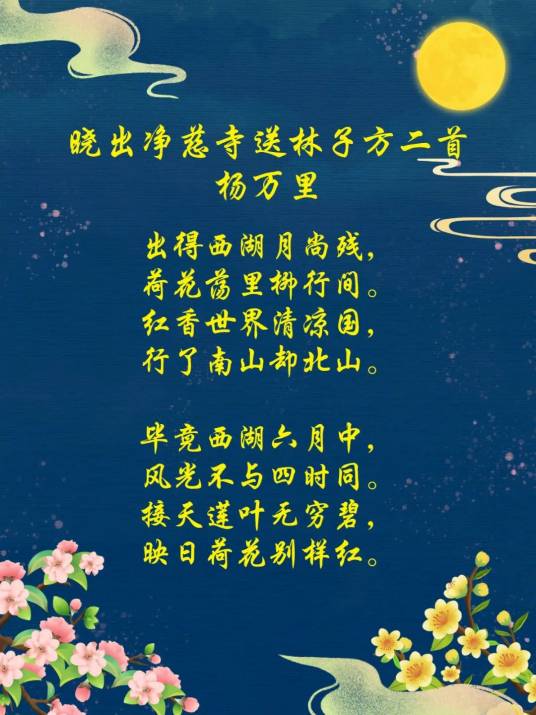 晓出净慈寺送林子方二首
杨万里
出得西湖月尚残，
荷花荡里柳行间。
红香世界清凉国，
行了南山却北山。
毕竟西湖六月中，
风光不与四时同。
接天莲叶无穷碧，
映日荷花别样红。